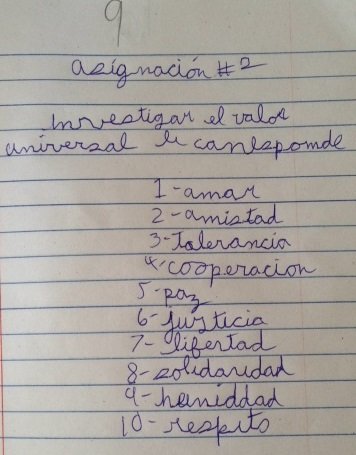 9
asignación #2
investigar el valor
universal le corresponde
1-amar
2-amistad
3-Tolerancia
4-cooperacion
5-paz
6-justicia
7-libertad
8-solidaridad
9-humiddad
10-respeto